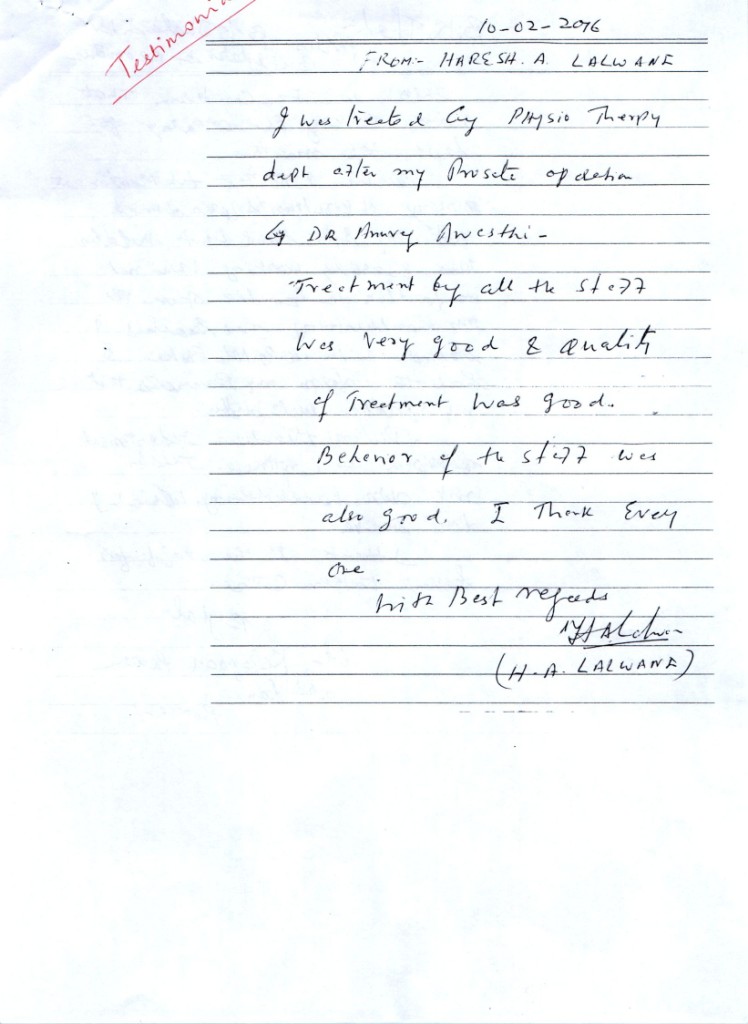 Testimonia
10-02-2016
FROM:- HARESH. A. LALWANE
I was treated by PHysio Therpy
dept after my Prosete operation
by DR Anurag Awesthi -
Treatment by all the staff
was very good & Quality
of Treatment was good.
Behenor of the staff was
also good. I Thank Every
one.
with Best regards
(H. A. LALWANE)